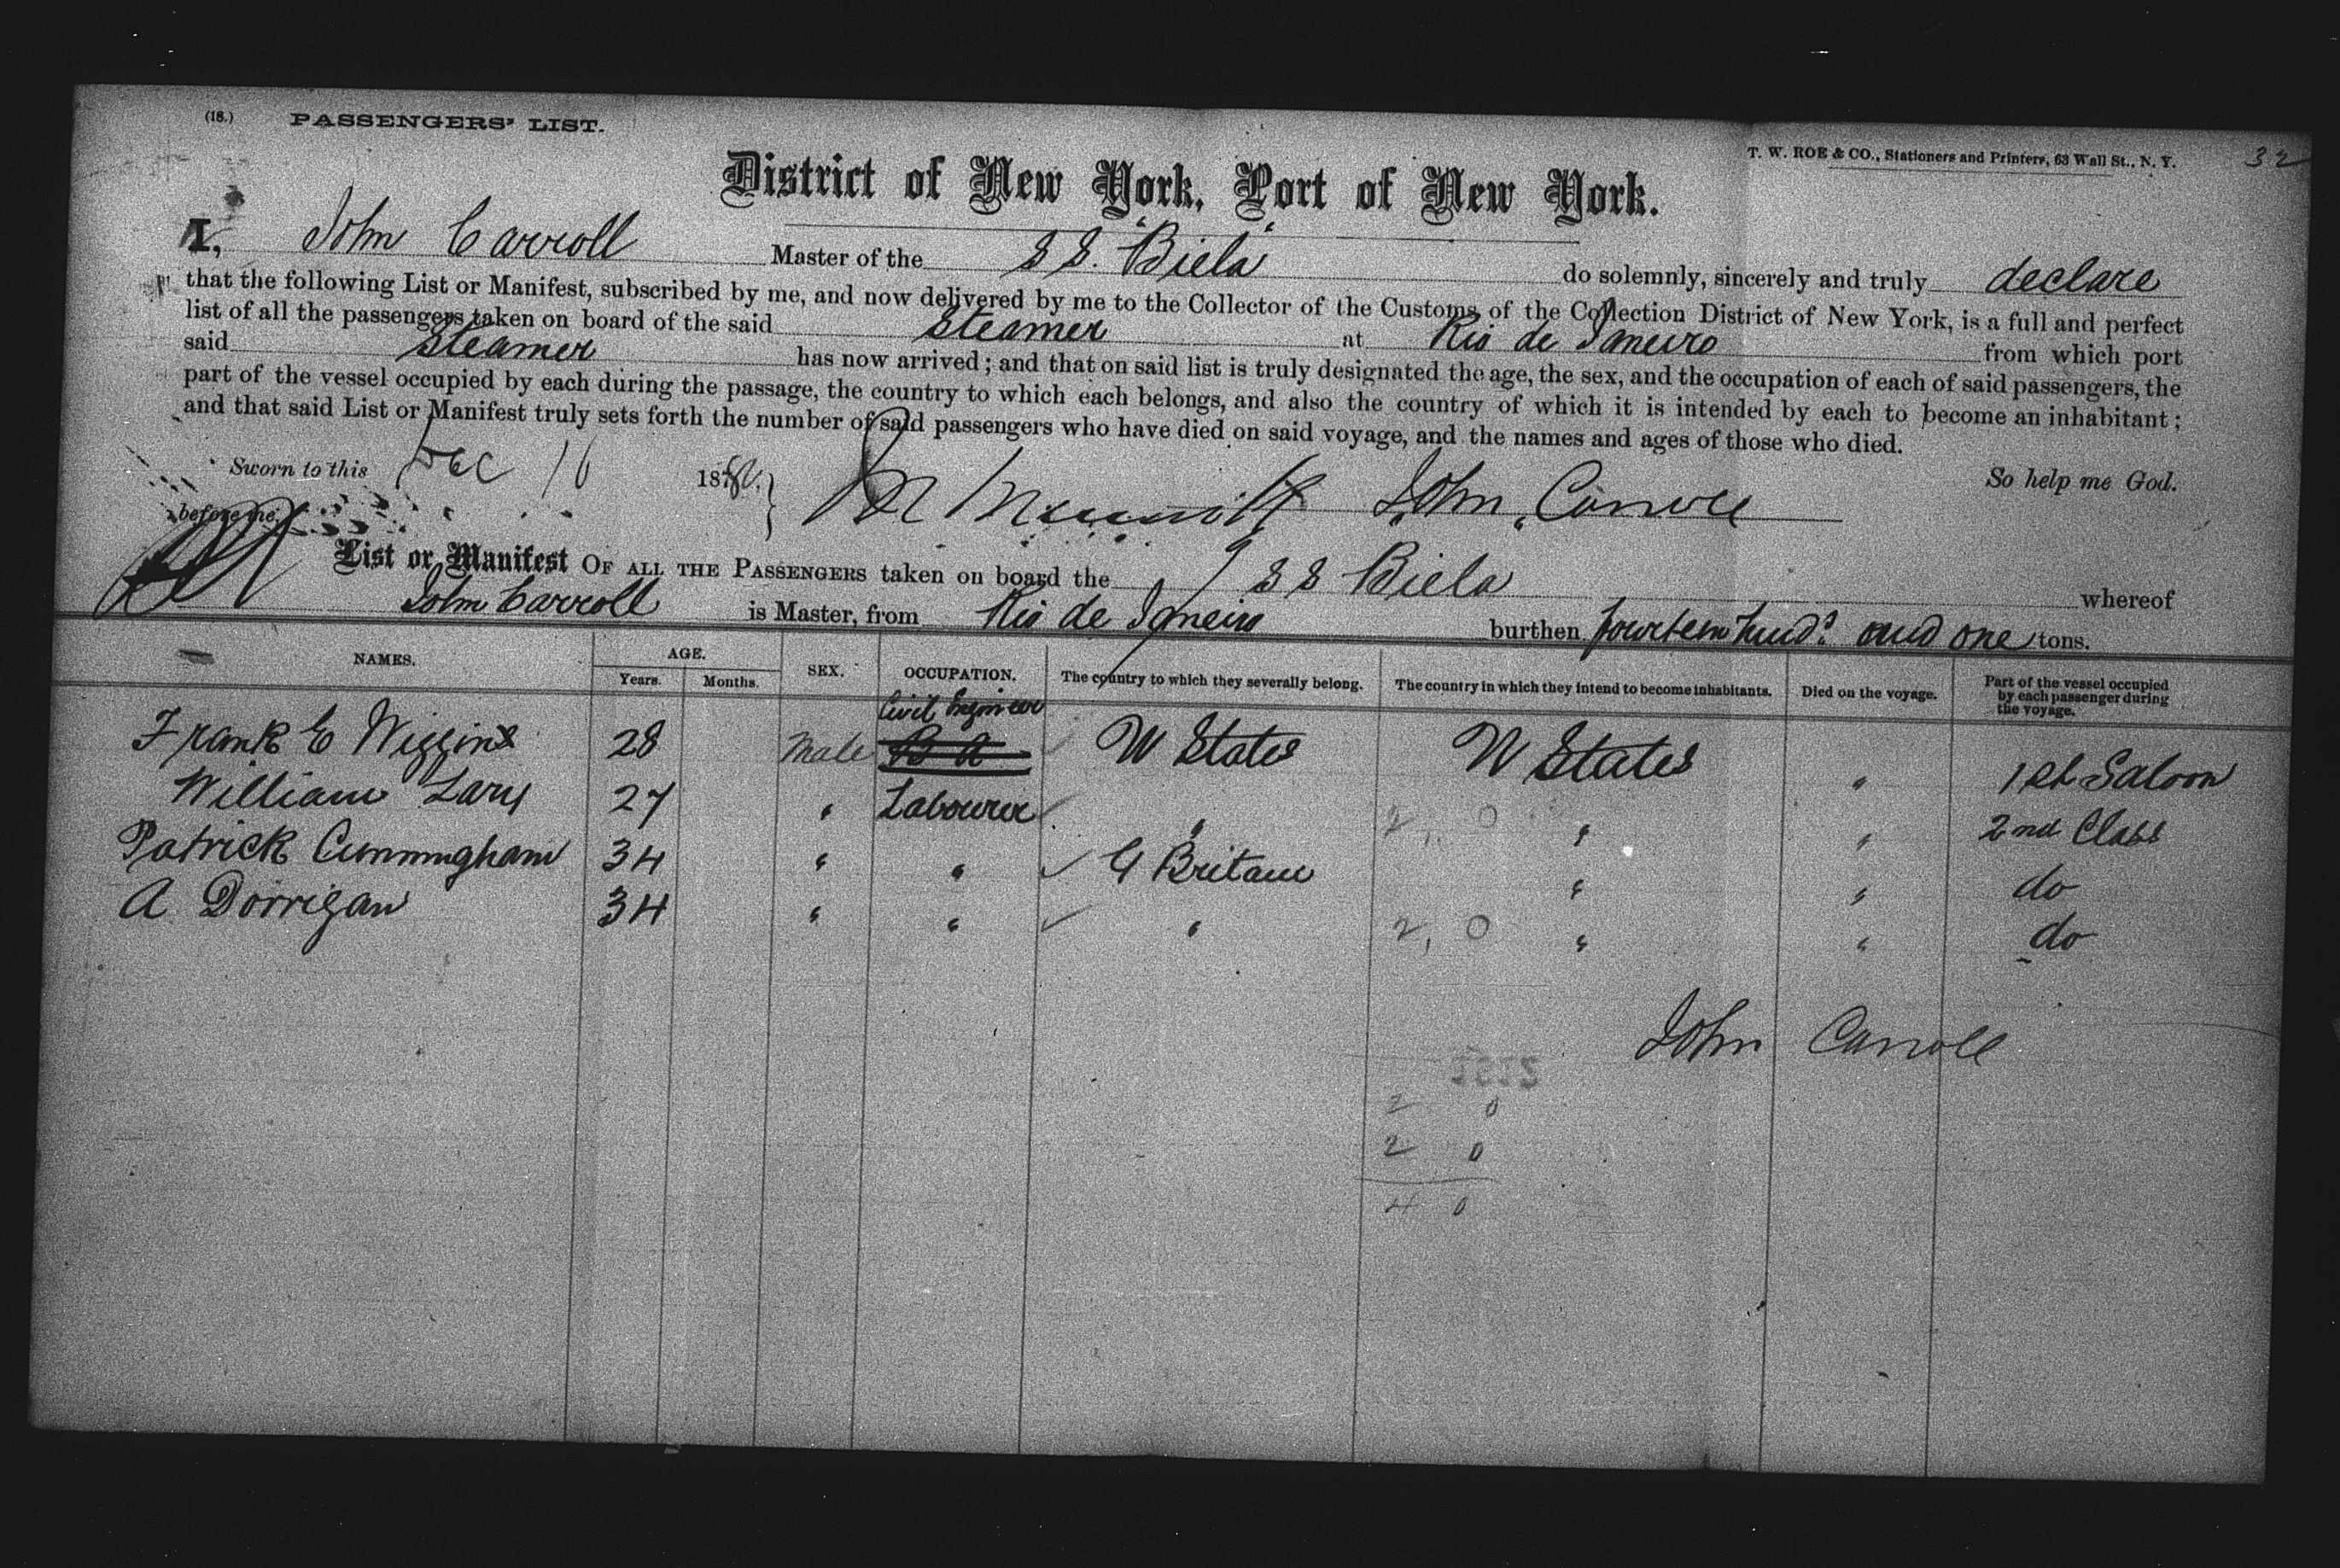 (18.) PASSENGERS' LIST.
T. W. ROE & CO., Stationers and Printers, 63 Wall St., N. Y. 32
District of New York, Port of New York.
I, John Carroll Master of the S S. "Biela" do solemnly, sincerely and truly declare
that the following List or Manifest, subscribed by me, and now delivered by me to the Collector of the Customs of the Collection District of New York, is a full and perfect
list of all the passengers taken on board of the said Steamer at Rio de Janeiro from which port
said Steamer has now arrived; and that on said list is truly designated the age, the sex, and the occupation of each of said passengers, the
part of the vessel occupied by each during the passage, the country to which each belongs, and also the country of which it is intended by each to become an inhabitant;
and that said List or Manifest truly sets forth the number of said passengers who have died on said voyage, and the names and ages of those who died.
Sworn to this Dec 16 1880. John Carroll So help me God.
before me,
List or Manifest OF ALL THE PASSENGERS taken on board the S S Biela whereof
John Carroll is Master, from Rio de Janeiro burthen fourteen hund? and one tons.
NAMES. AGE. SEX. OCCUPATION. The country to which they severally belong. The country in which they intend to become inhabitants. Died on the voyage. Part of the vessel occupied by each passenger during the voyage.
Years. Months.
Civil Engineer
Frank E Wiggins 28 Male B A U States U States " 1st Saloon
William Lary 27 " Labourer " 2, 0 " " 2nd Class
Patrick Cunningham 34 " " G Britain " " do
A Dorrigan 34 " " " 2, 0 " " do
John Carroll
2 0
2 0
4 0